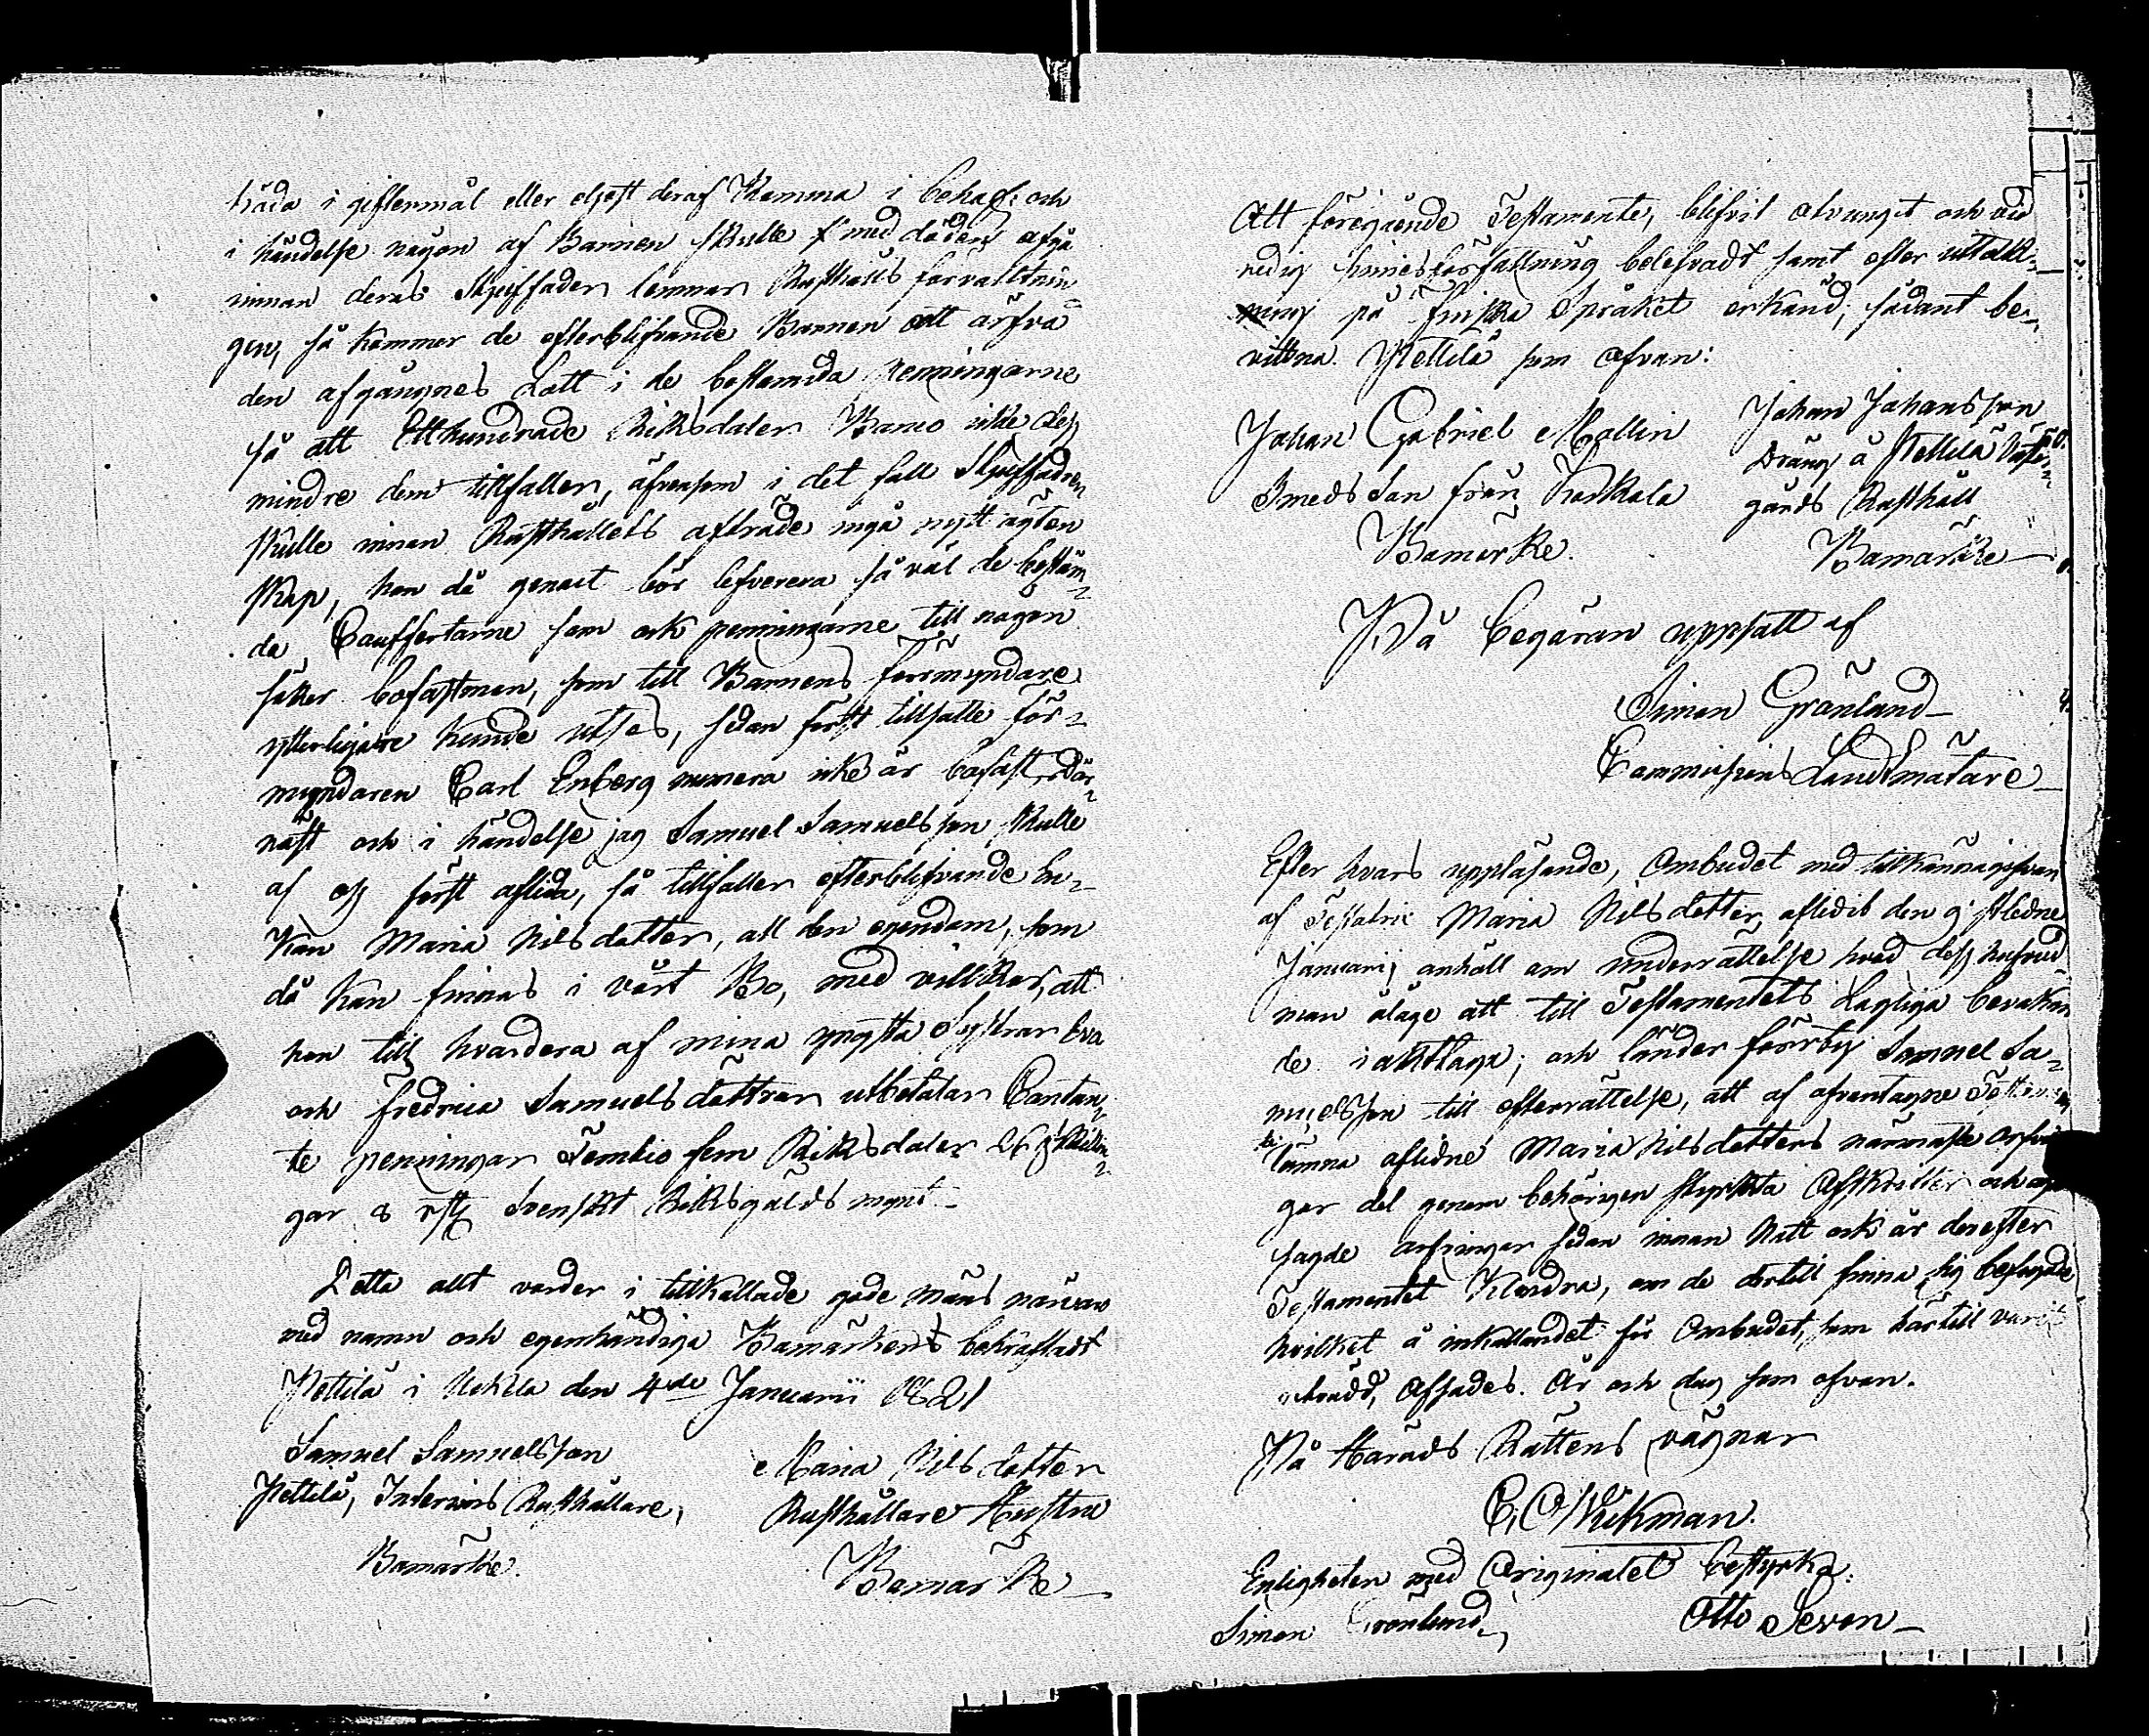 träda i giftermål eller eljest deraf komma i behof; och
i händelse någon af Barnen skulle med döden afgå
innan deras Stjuffader lemnar Rusthålls förvaltnin¬
gen, så kommer de efterblifvande Barnen att ärfva
den afgångnes Lott i de bestämda penningarne
så att Etthundrade Riksdaler Banco icke dess
mindre dem tillfaller, äfvensom i det fall Stjuffadren
skulle innan Rusthållets afträde ingå nytt ägten
skap, han då genast bör lefverera så väl de bestäm¬
da Couffertarne som ock penningarne till någon
säker bofastman, som till Barnens förmyndare
ytterligare kunde utses, sedan först tillsatte för¬
myndaren Carl Enberg numera icke är bofast, där¬
näst och i händelse jag Samuel Samuelsson skulle
af oss först aflida, så tillfaller efterblifvande En¬
kan Maria Nilsdotter, all den egendom, som
då kan finnas i vårt Bo, med vilkor, att
hon till hvardera af mina yngsta Systrar Eva
och Fredrica Samuelsdöttrar utbetalar Contan¬
te penningar Femtio fem Riksdaler 26 skillin¬
gar 8 rst Svenskt Riksgälds mynt.
Detta allt varder i tillkallade gode mäns närvaro
med namn och egenhändiga Bomärkens bekräftadt
Yttilä i Uskela den 4de Januarii 1821
Samuel Samuelsson
Yttilä, Interims Rusthållare,
Bomärke.
Maria Nilsdotter
Rusthållare Hustru
Bomärke
Att föregående Testamente, blifvit otvunget och vid
redig sinnesförfattning belefvadt samt efter uttolk¬
ning på finska Språket erkänd; sådant be¬
vittna. Yttilä som ofvan:
Johan Gabriel Mallin
Smeds Son från Karkola
Bomärke.
Johan Johansson
Dräng å Yttilä Väster
gårds Rusthåll
Bomärke
På begäran uppsatt af
Simon Grönlund
Commissions Landtmätare
Efter hvars uppläsande, Ombudet med tillkännagifvan
af Testatrix Maria Nilsdotter aflidit den 9 sistledne
Januarii, anhöll om underrättelse hvad dess hufvud¬
man ålåge att till Testamentets Lagliga bevakan
de iakttaga; och länder förrby Samuel Sa¬
muelsson till efterrättelse, att af ofvantagne Testamen
te lämna aflidne Maria Nilsdotters närmaste Arfvin
gar del genom behörigen styrkta Afskrifter och
sagde arfvingar sedan innan Natt och år derefter
Testamentet Klandra, om de dertill finna sig befogade
hvilket å inkallandet för Ombudet, som härtill varit
utträdd, Afsades. År och dag som ofvan.
På Härads Rättens vägnar
C. O. Wikman.
Enligheten med Originalet bestyrka:
Simon Grönlund,
Otto Seven